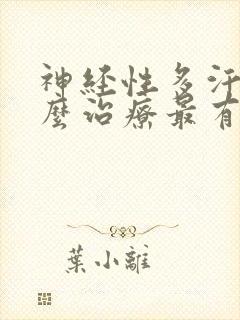 神经性多汗
麽治疗最有
葉小離